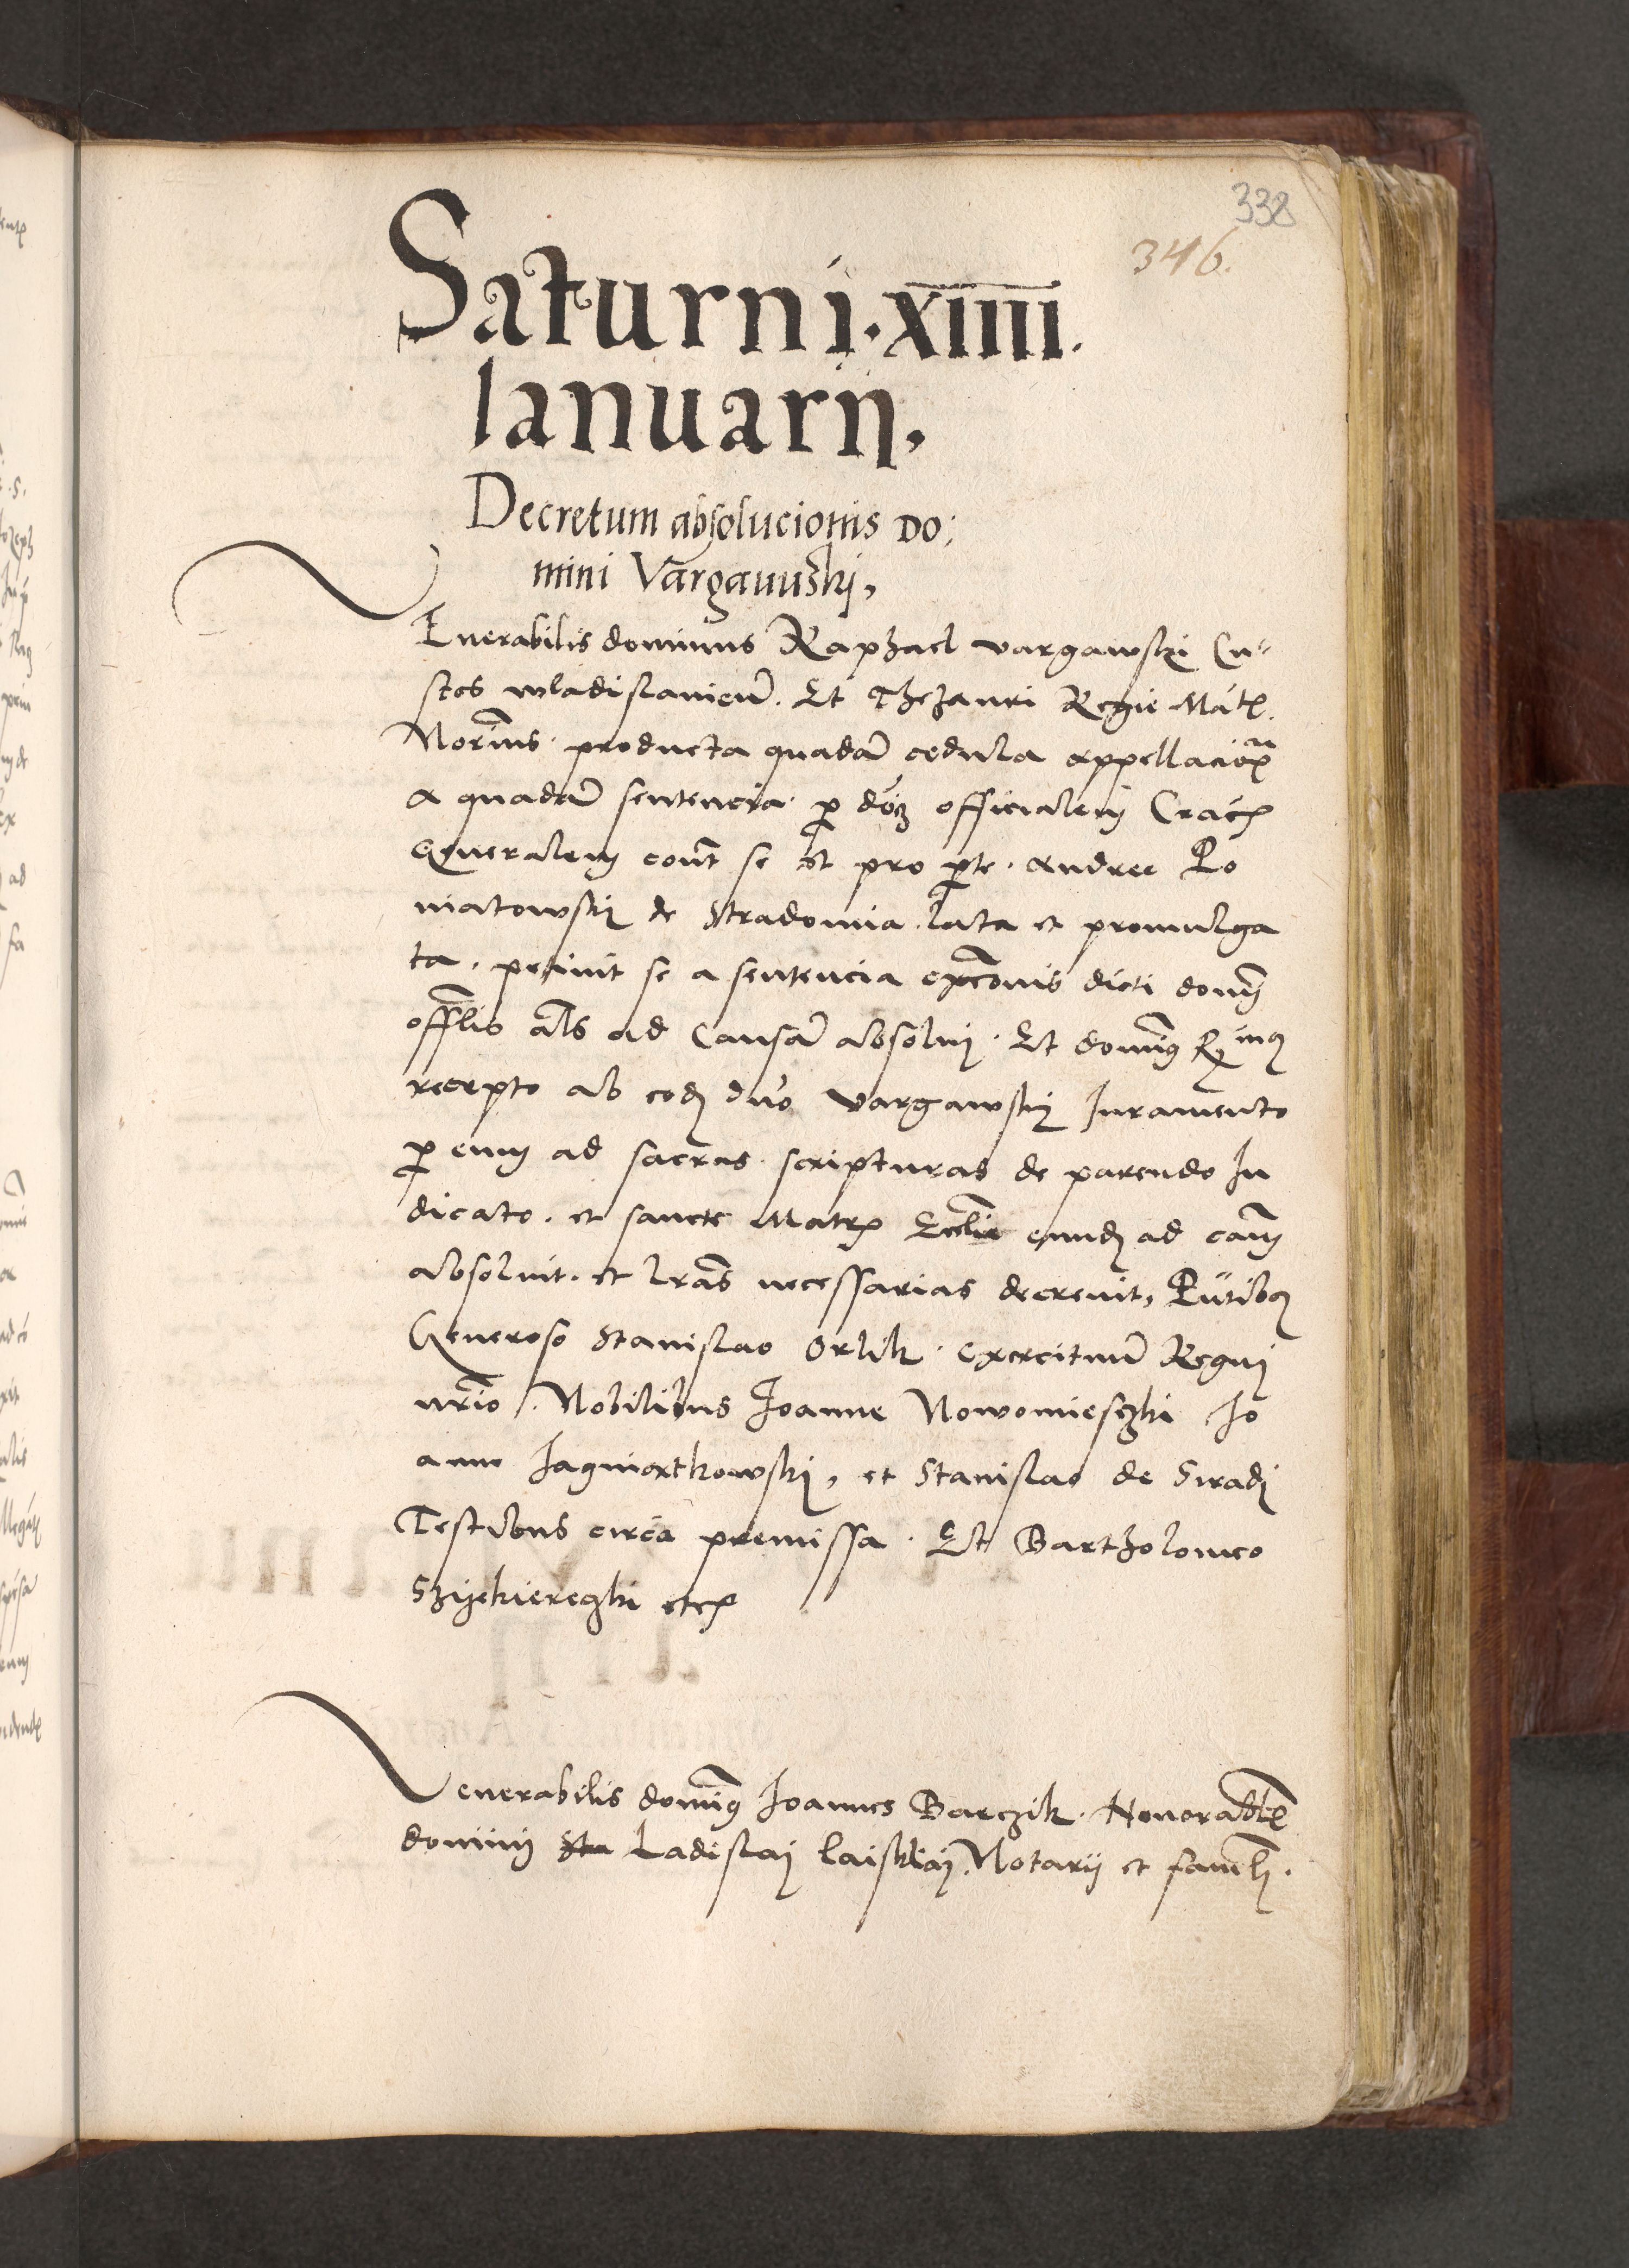 338
346.
Saturni. xiiii.
Ianuarij.
Decretum absolucionis Do:
mini Vargauuski,
Venerabilis dominus Raphael vargawski Cu-
stos wladislavien̄. Et Thezauri Regie Mat̄.
Norius. producta quadā cedula appellacioīs
a quadā sentencia p dn̄m officialem Crac̄
Generalem cont̄ se et pro p̄te. Andree Po
niatowski de Stradomia lata et promulga
ta. petivit se a sentencia exc̄onis dicti domi
offlis al̄s ad Causā absolvi. Et dominus R
recepto ab eodē dn̄o vargawski Iuramento
p eum ad sacras scripturas de parendo Iu
dicato. et sancte Matris Ecclie eundē ad cām
absolvit. et lr̄as necessarias decrevit, Pn̄tibus
Generoso Stanislao Orlik. exercituū Regni
nrio. Nobilibus Ioanne Nowomieszki Io
anne Iagniathkowski, et Stanislao de Siradi
Testibus circa premissa. Et Bartholomeo
etc
Venerabilis dominus Ioannes Barczik. Honorab
domini Ladislai Notarij et